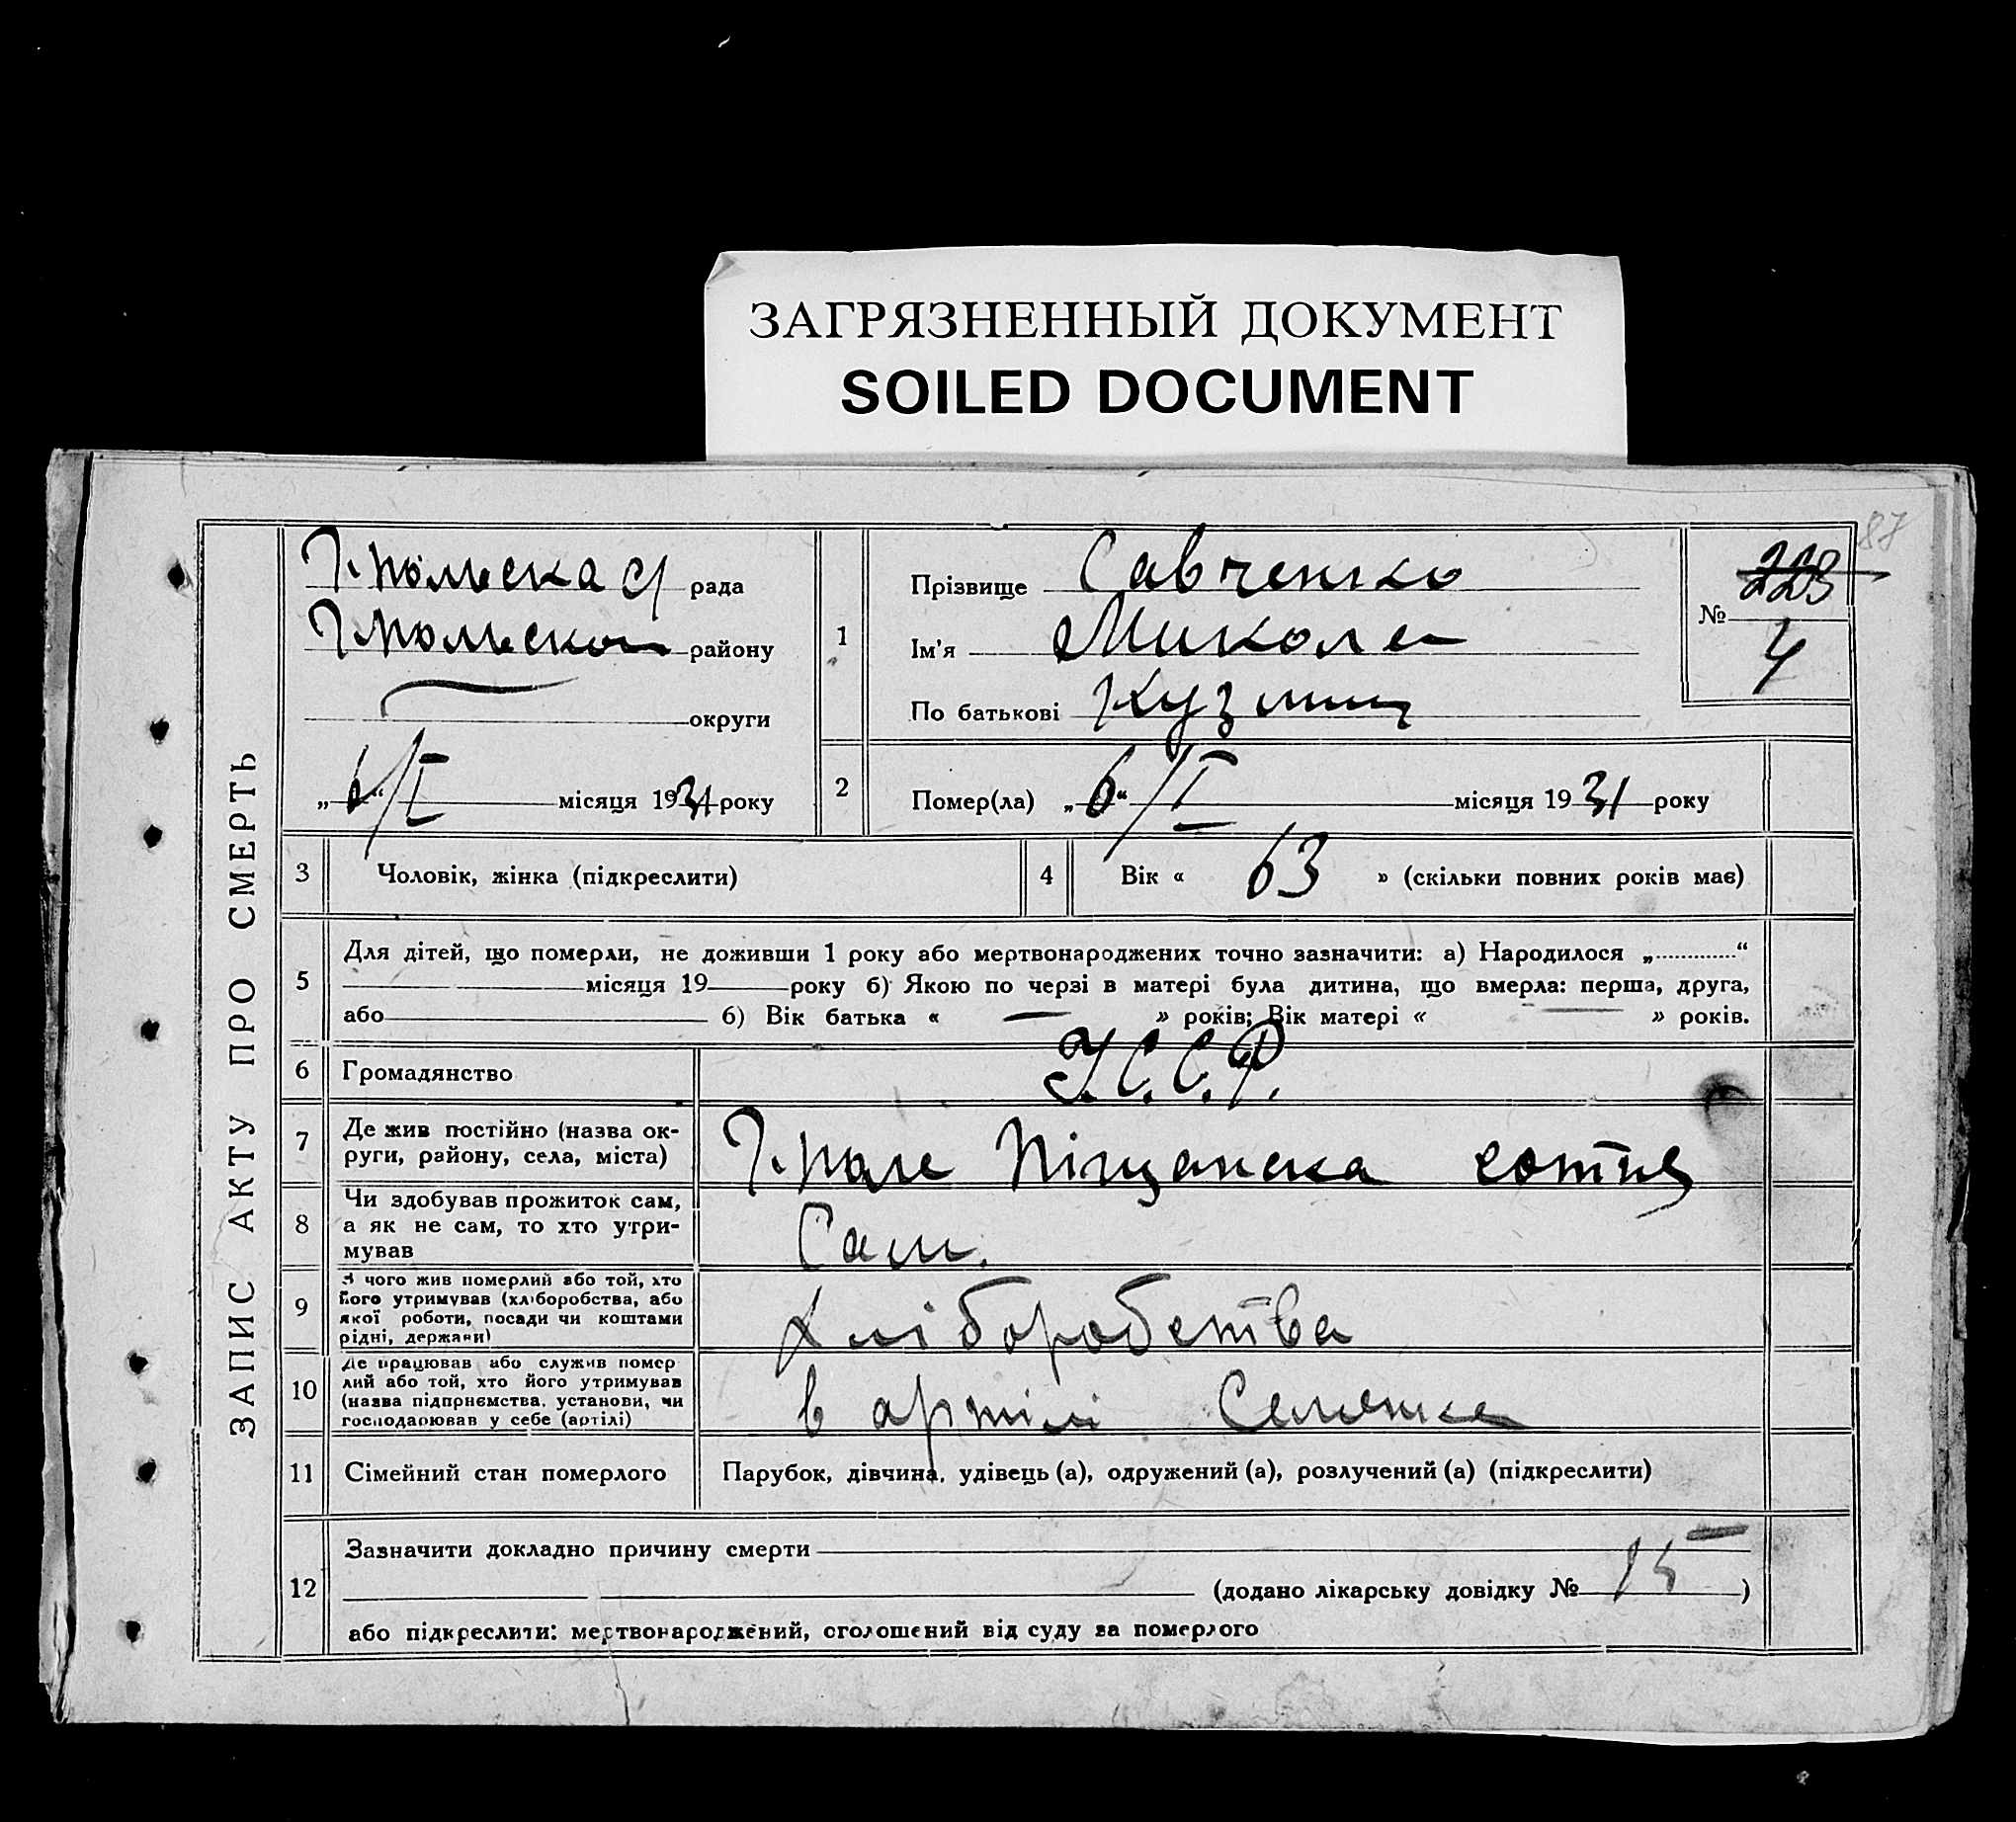 ЗАГРЯЗНЕННЫЙ ДОКУМЕНТ
SOILED DOCUMENT
87
ЗАПИС АКТУ ПРО СМЕРТЬ
рада
району
округи
„6“/I місяця 1931 року
1
Прізвище Савченко
Ім'я Микола
По батькові Кузмич
№ 223
4
2
Помер(ла) „6“/I місяця 1931 року
3
Чоловік, жінка (підкреслити)
4
Вік « 63 » (скільки повних років має)
5
Для дітей, що померли, не доживши 1 року або мертвонароджених точно зазначити: а) Народилося „ “
місяця 19 року б) Якою по черзі в матері була дитина, що вмерла: перша, друга,
або б) Вік батька « — » років; Вік матері « — » років.
6
Громадянство
У.С.С.Р.
7
Де жив постійно (назва ок-
руги, району, села, міста)
Піщанска сотня
8
Чи здобував прожиток сам,
а як не сам, то хто утри-
мував
Сам.
9
З чого жив померлий або той, хто
його утримував (хліборобства, або
якої роботи, посади чи коштами
рідні, держави)
Хліборобства
10
Де працював або служив помер
лий або той, хто його утримував
(назва підприємства, установи, чи
господарював у себе (артілі)
в артілі
11
Сімейний стан померлого
Парубок, дівчина, удівець (а), одружений (а), розлучений (а) (підкреслити)
12
Зазначити докладно причину смерти
(додано лікарську довідку № 15 )
або підкреслити: мертвонароджений, оголошений від суду за померлого